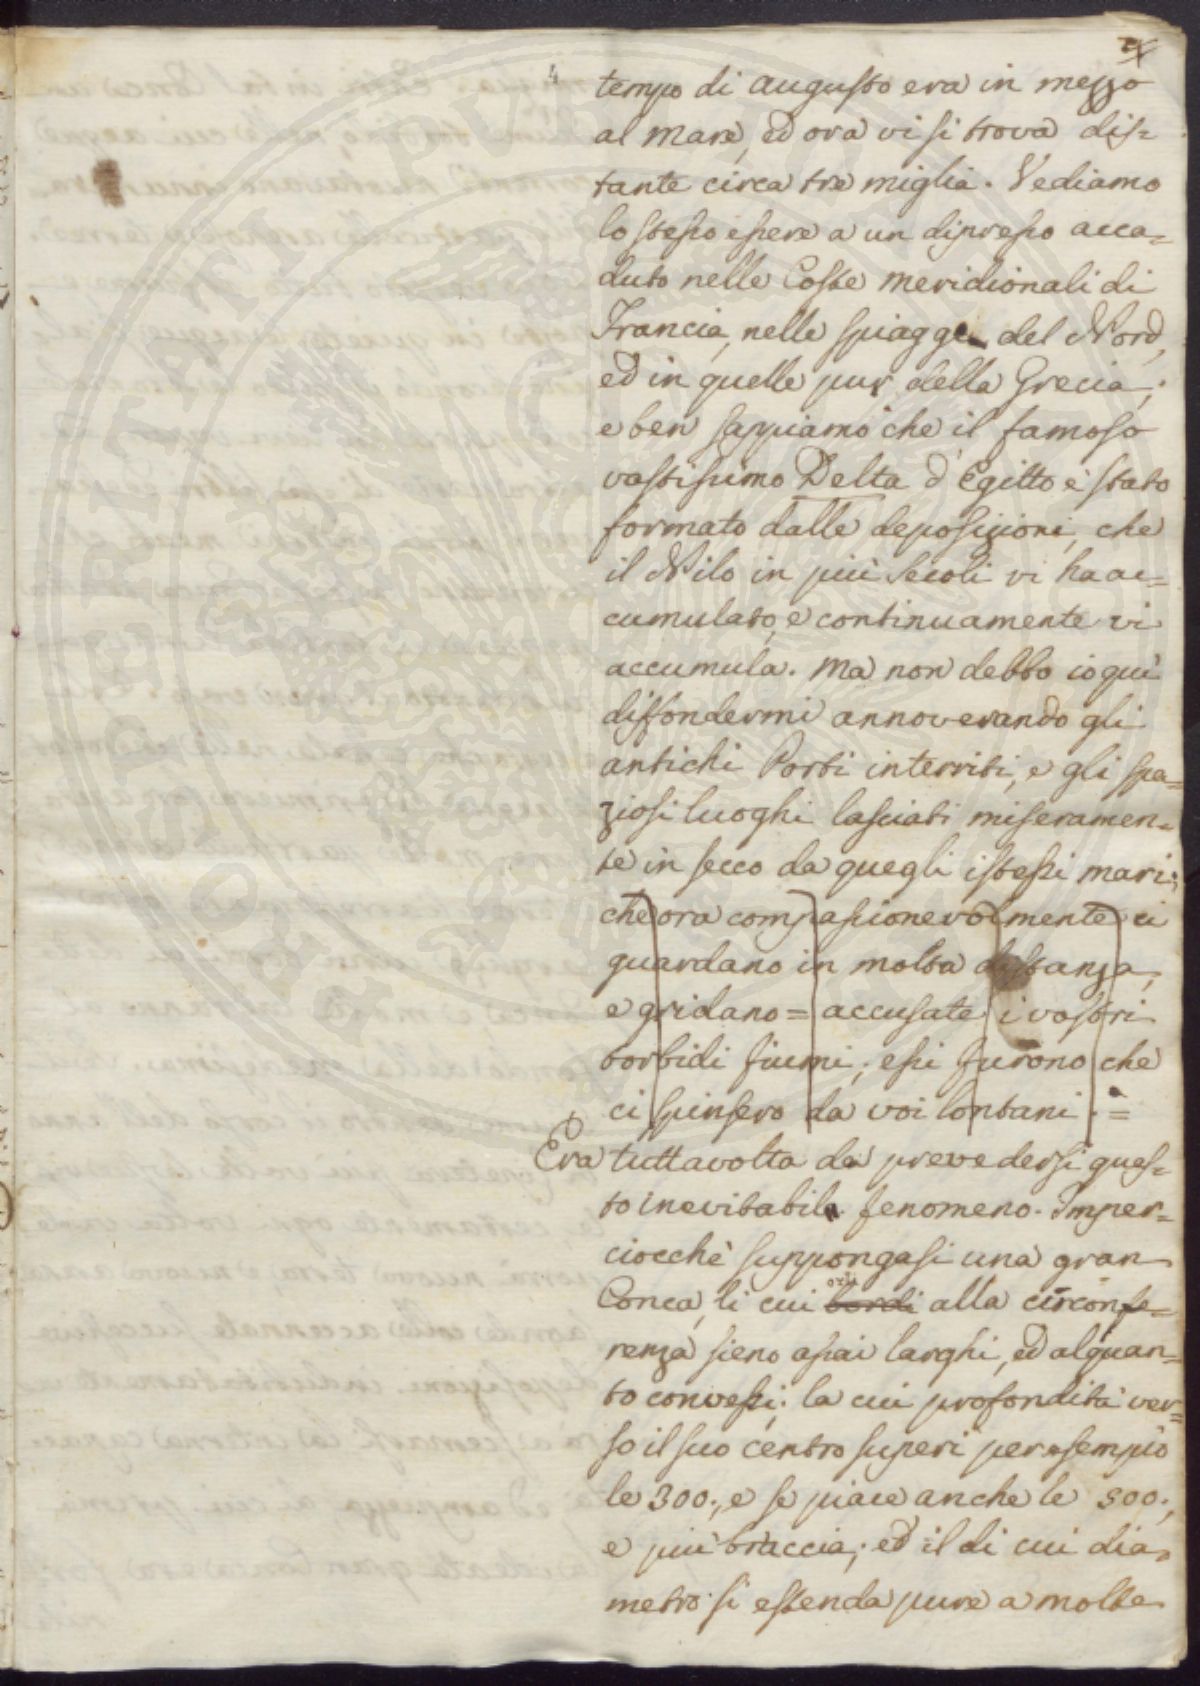 4
tempo di Augusto era in mezzo
al Mare, ed ora vi si trova dis=
tante circa tre miglia. Vediamo
lo stesso essere a un dipresso acca=
duto nelle Coste Meridionali di
Francia, nelle spiagge del Nord,
ed in quelle pur della Grecia;
e ben sappiamo che il famoso
vastissimo Delta d'Egitto è stato
formato dalle deposizioni, che
il Nilo in più Secoli vi ha ac=
cumulato, e continuamente vi
accumula. Ma non debbo io quì
diffondermi annoverando gli
antichi Porti interriti, e gli spa=
ziosi luoghi lasciati miseramen=
te in secco da quegli istessi mari;
che ora compassionevolmente ci
guardano in molta distanza,
e gridano = accusate i vostri
torbidi fiumi; essi furono che
ci spinsero da voi lontani. =
Era tuttavolta da prevedersi ques=
to inevitabile fenomeno. Imper=
ciocchè suppongasi una gran
Conca, li cui bordi orli alla circonfe=
renza sieno assai larghi, ed alquan=
to convessi; la cui profondità ver=
so il suo centro superi per esempio
le 300:, e se piace anche le 500;
e più braccia; ed il di cui dia=
metro si estenda pure a molte
PROSPERITATI PUBLICAE